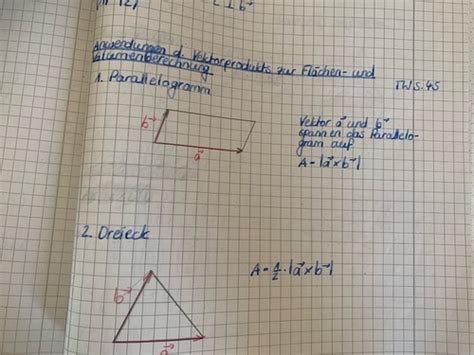 ⊥ b→
Anwendungen d. Vektorprodukts zur Flächen- und
Volumenberechnung
TWS.45
1. Parallelogramm
b→
a→
Vektor a→ und b→
spannen das Parallelo-
gram auf
A = |a→ x b→|
2. Dreieck
b→
a→
A = 1/2 · |a→ x b→|